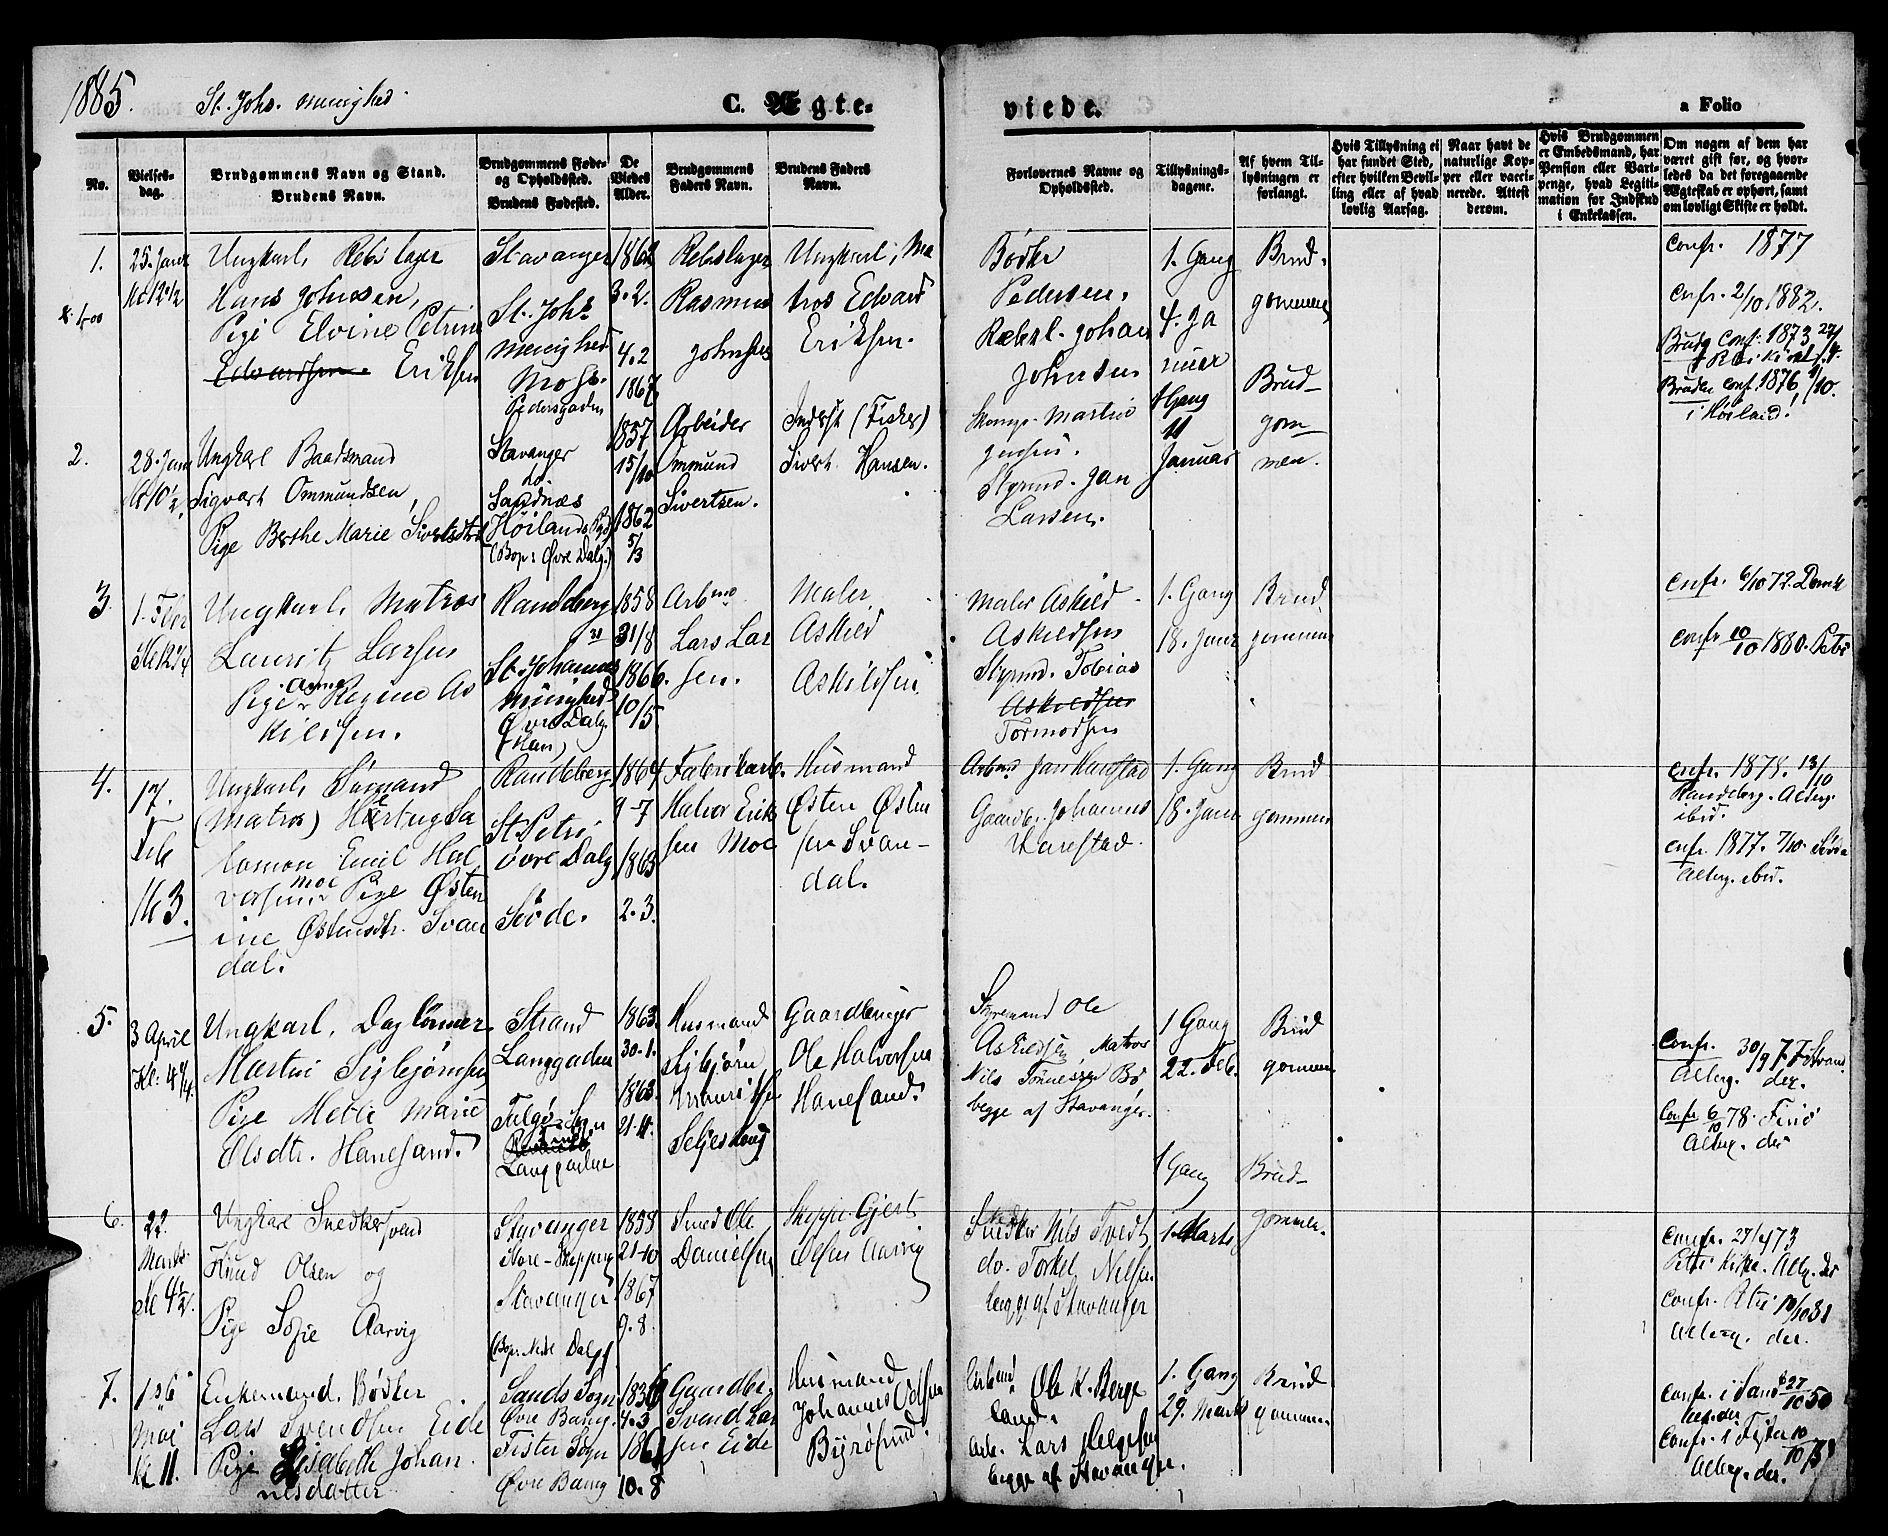 1885. St. Johs. menighed
C. Ægte-
viede.
a Folio
No.
Vielses-
dag.
Brudgommens Navn og Stand.
Brudens Navn.
Brudgommens Føde-
og Opholdssted.
Brudens Fødested.
De
Viedes
Alder.
Brudgommens
Faders Navn.
Brudens Faders
Navn.
Forlovernes Navne og
Opholdssted.
Tillysnings-
dagene.
Af hvem Til-
lysningen er
forlangt.
Hvis Tillysning ei
har fundet Sted,
efter hvilken Bevil-
ling eller af hvad
lovlig Aarsag.
Naar havt de
naturlige Kop-
per eller vacci-
nerede. Attest
derom.
Hvis Brudgommen
er Embedsmand, har
Pension eller Vart-
penge, hvad Legiti-
mation for Indskud
i Enkekassen.
Om nogen af dem har
været gift før, og hvor-
ledes da det foregaaende
Ægteskab er ophørt, samt
om lovligt Skifte er holdt.
1.
25. Januar
Kl 12 1/2
Ungkarl, Rebslager
Hans Johnsen,
Pige Elvine Petrine
Edvardsen. Eriksen
Stavanger
St. Johs
menighed
Pedersgaden
1862
3-2.
4.2
1867
Rebslager
Rasmus
Johnsen
Ungkarl, Ma
tros Edvard
Eriksen.
Bødker
Pedersen.
Rebsl. Johan
Johnsen
1. Gang
4. Ja
nuar
Brud-
gommen
Confr. 1877
Cnfr. 2/10 1882.
2.
28. Janu
Kl 10 1/2.
Ungkarl Baadsmand
Sigvart Ommundsen,
Pige Berthe Marie Sivertsdtr
Stavanger
Sandnæs
Høilands Pgd
(Bop: Øvre Dalg.)
1857
15/10
1862
5/3
Arbeider
Ommund
Sivertsen.
Inderst (Fisker)
Sivert Hansen.
Martin
Jensen.
Styrmd. Jan
Larsen.
1 Gang
11
Januar
Brud-
gom-
men.
Brudg Conf. 1873
Bruden Conf. 1876, 1/10.
i Høiland.
3.
1. Febr
Kl 12 1/4
Ungkarl, Matros
Lauritz Larsen
Pige Anne Regine As
kildsen.
Randeberg
St. Johannes
menighed
Øvre Dalg.
(Han)
1858
31/8
1866.
10/5
Arbmd
Lars Lar
sen.
Maler
Askild
Askildsen
Maler Askild
Askildsen
Styrmd. Tobias
Askildsen
Tormodsen
1. Gang
18. Janr
Brud-
gommen
Cnfr. 6/10 72. Domk
Confr 10/10 1880. Petri
4.
17.
Feb
Kl 3.
Ungkarl, Sømand
(Matros) Hartvig Sa
lomon Emil Hal
vorsen Moe Pige Østen
ine Østensdtr. Svan
dal.
Randeberg
St Petri
øvre Dalg
Søvde.
1864
9-7
1863
2.3.
Fabrikarb.
Halvor Erik
sen Moe
Husmand
Østen Østen
sen Svan-
dal.
Arbmd Jan Harestad
Gaardbr. Johannes
Harestad.
1. Gang
18. Janr
Brud
gommen
Cnfr. 1878. 13/10
Randeberg. Alterg.
ibid.
Cnfr. 1877. 7/10. Søvde
Alterg. ibid.
5.
3 April
Kl: 4 3/4.
Ungkarl, Daglønner
Martin Sigbjørnsen
Pige Mette Marie
Olsdtr. Hanesand.
Strand
Langgaden
Langgaden
1863.
30-1.
1863
21-11.
Husmand
Sigbjørn
Gaardbruger
Ole Halvorsen
Hanesand.
Styrmand Ole
Askildsen, Matros
Nils Tønnessen Bø
begge af Stavanger.
1 Gang
22. Feb.
Brud
gommen
Confr. 30/9 77 Strand
Alterg. der.
Confr 6/10 78. Finø
Alterg. der
6.
22.
Marts
Kl 4 1/2.
Ungkarl Snedkersvend
Knud Olsen og
Pige Sofie Aarvig
Stavanger
Store-Skipperg
Stavanger
(Bop. Nedr Dalg
1858
21-10
1867
9.8.
Smed Ole
Danielsen
Skipper Gjert
Olsen Aarvig
Snedker Nils Tvedt
do. Torkel Nilsen
begge af Stavanger
1 Gang
1. Marts
Brud-
gommen.
Confr. 27/4 73
Petri Kirke. Alterg. der
Confr. Petri 10/10 81
Alterg. der.
7.
Mai
Kl 11.
Enkemand, Bødker
Lars Svendsen Eide
Pige Elisabeth Johan
nesdatter
Sands Sogn
Øvre Baneg.
Fister Sogn
Øvre Baneg
1836
4.3
1861
10.8
Gaardbr.
Svend Lar
sen Eide
Husmand
Johannes Odsen
Byrøsund.
Arbmd. Ole K. Berge
land.
Arb. Lars Helgesen
begge af Stavanger.
1. Gang
29. Marts
Brud
gommen
Confr. i Sand 27/10 50
Confr. i Fister 10/10
Alterg. der.